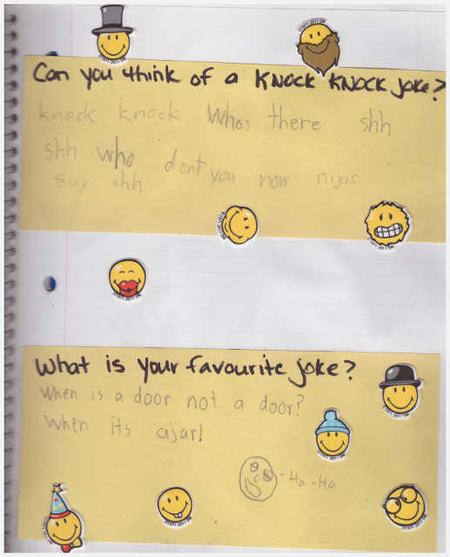 Can you think of a KNOCK KNOCK joke?
knock knock Whos there shh
shh who dont you now
say shh
What is your favourite joke?
When is a door not a door?
When its ajar!
Ha-Ha